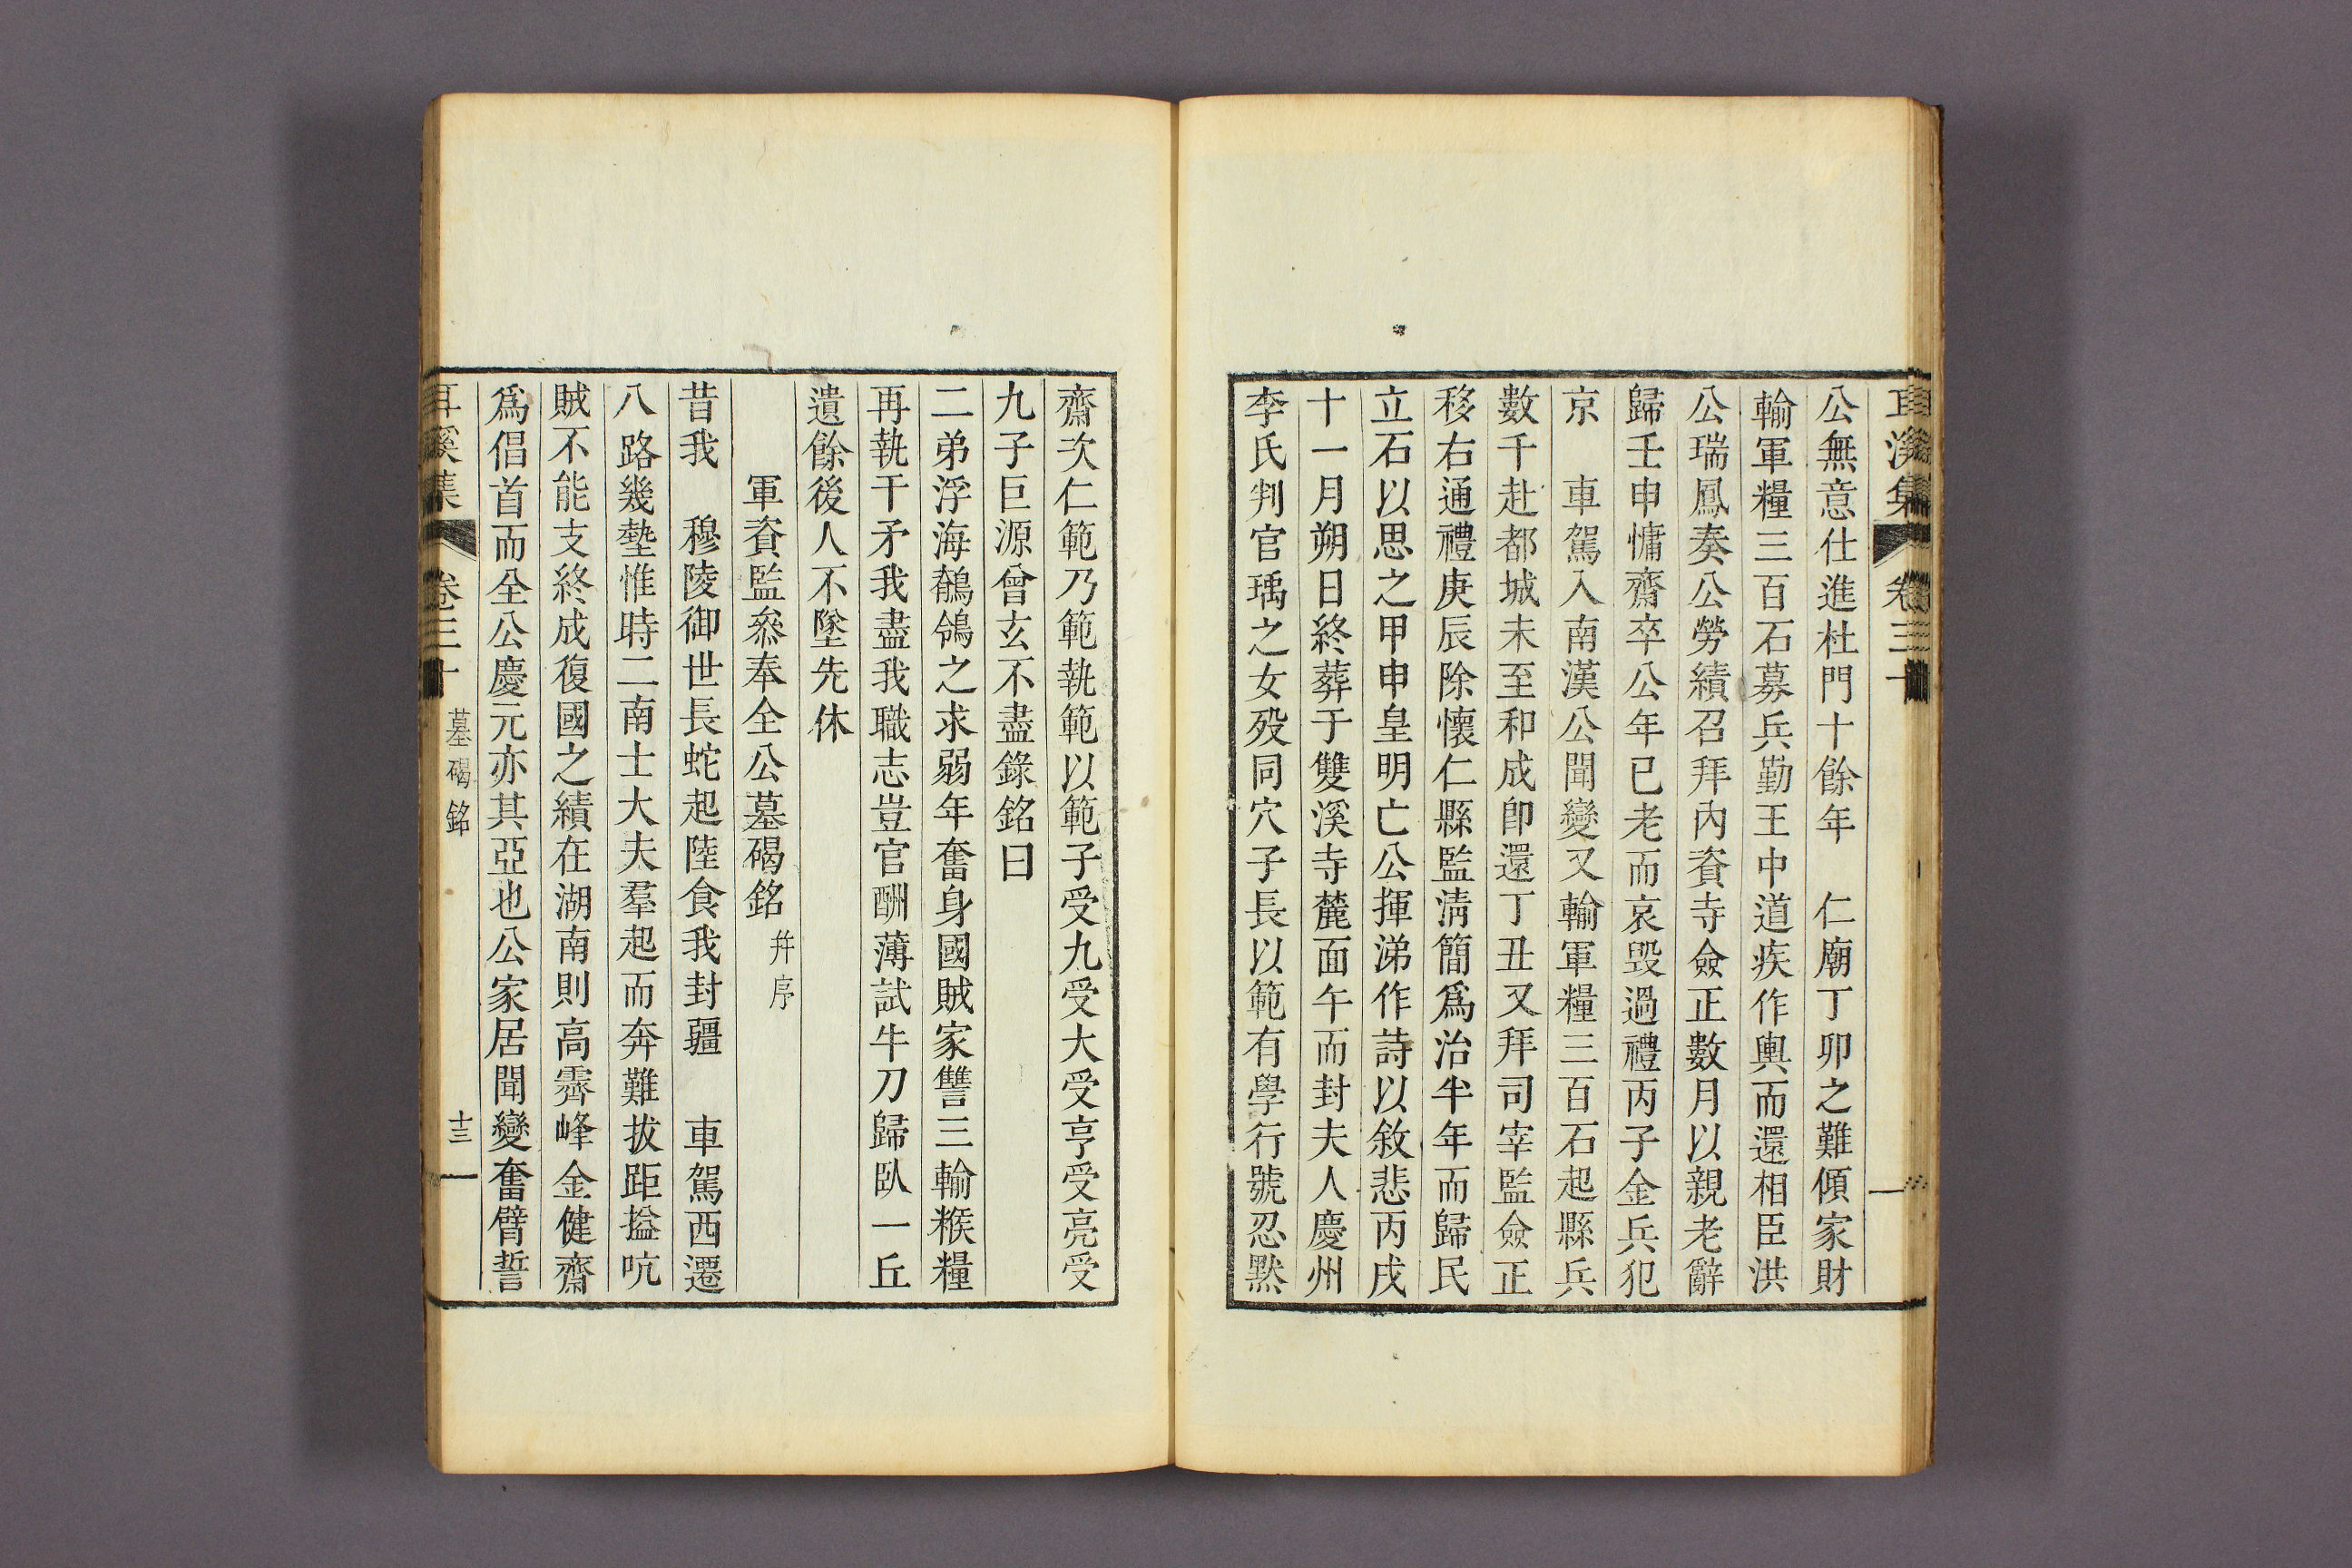 公無意仕進杜門十餘年 仁廟丁卯之難傾家財
輸軍糧三百石募兵勤王中道疾作輿而還相臣洪
公瑞鳳奏公勞績召拜內資寺僉正數月以親老辭
歸壬申慵齋卒公年已老而哀毀過禮丙子金兵犯
京 車駕入南漢公聞變又輸軍糧三百石起縣兵
數千赴都城未至和成卽還丁丑又拜司宰監僉正
移右通禮庚辰除懷仁縣監淸簡爲治半年而歸民
立石以思之甲申皇明亡公揮涕作詩以敘悲丙戌
十一月朔日終葬于雙溪寺麓面午而封夫人慶州
李氏判官瑀之女歿同穴子長以範有學行號忍默
齋次仁範乃範執範以範子受九受大受亨受亮受
九子巨源曾玄不盡錄銘曰
二弟浮海鶺鴒之求弱年奮身國賊家讐三輸糇糧
再執干矛我盡我職志豈官酬薄試牛刀歸臥一丘
遺餘後人不墜先休
軍資監叅奉全公墓碣銘 幷序
昔我 穆陵御世長蛇起陸食我封疆 車駕西遷
八路幾墊惟時二南士大夫羣起而奔難拔距搤吭
賊不能支終成復國之績在湖南則高霽峰金健齋
爲倡首而全公慶元亦其亞也公家居聞變奮臂誓
耳溪集 卷三十 墓碣銘 十三